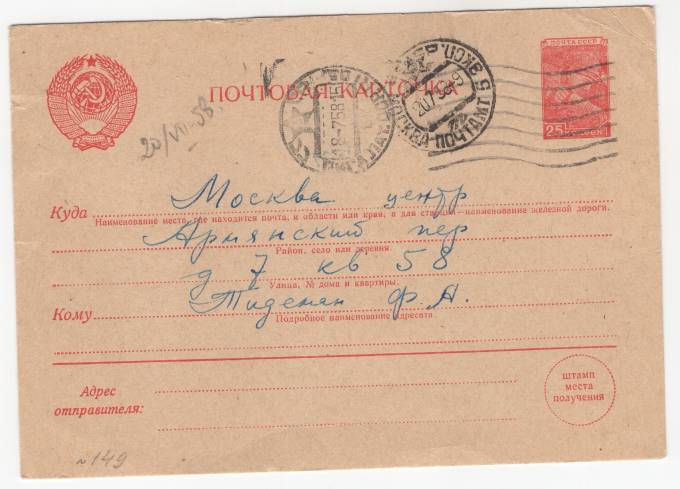 ПОЧТА СССР
25 КОПЕЕК
ПОЧТОВАЯ КАРТОЧКА
МОСКВА ПОЧТАМТ
ЭКСП.
20/VII-58.
Москва центр
Куда
Наименование места, где находится почта, и области или края, а для станции—наименование железной дороги.
Армянский пер
Район, село или деревня.
д 7 кв 58
Улица, № дома и квартиры.
Тидеман Ф. А.
Кому
Подробное наименование адресата
Адрес
отправителя:
штамп
места
получения
№149